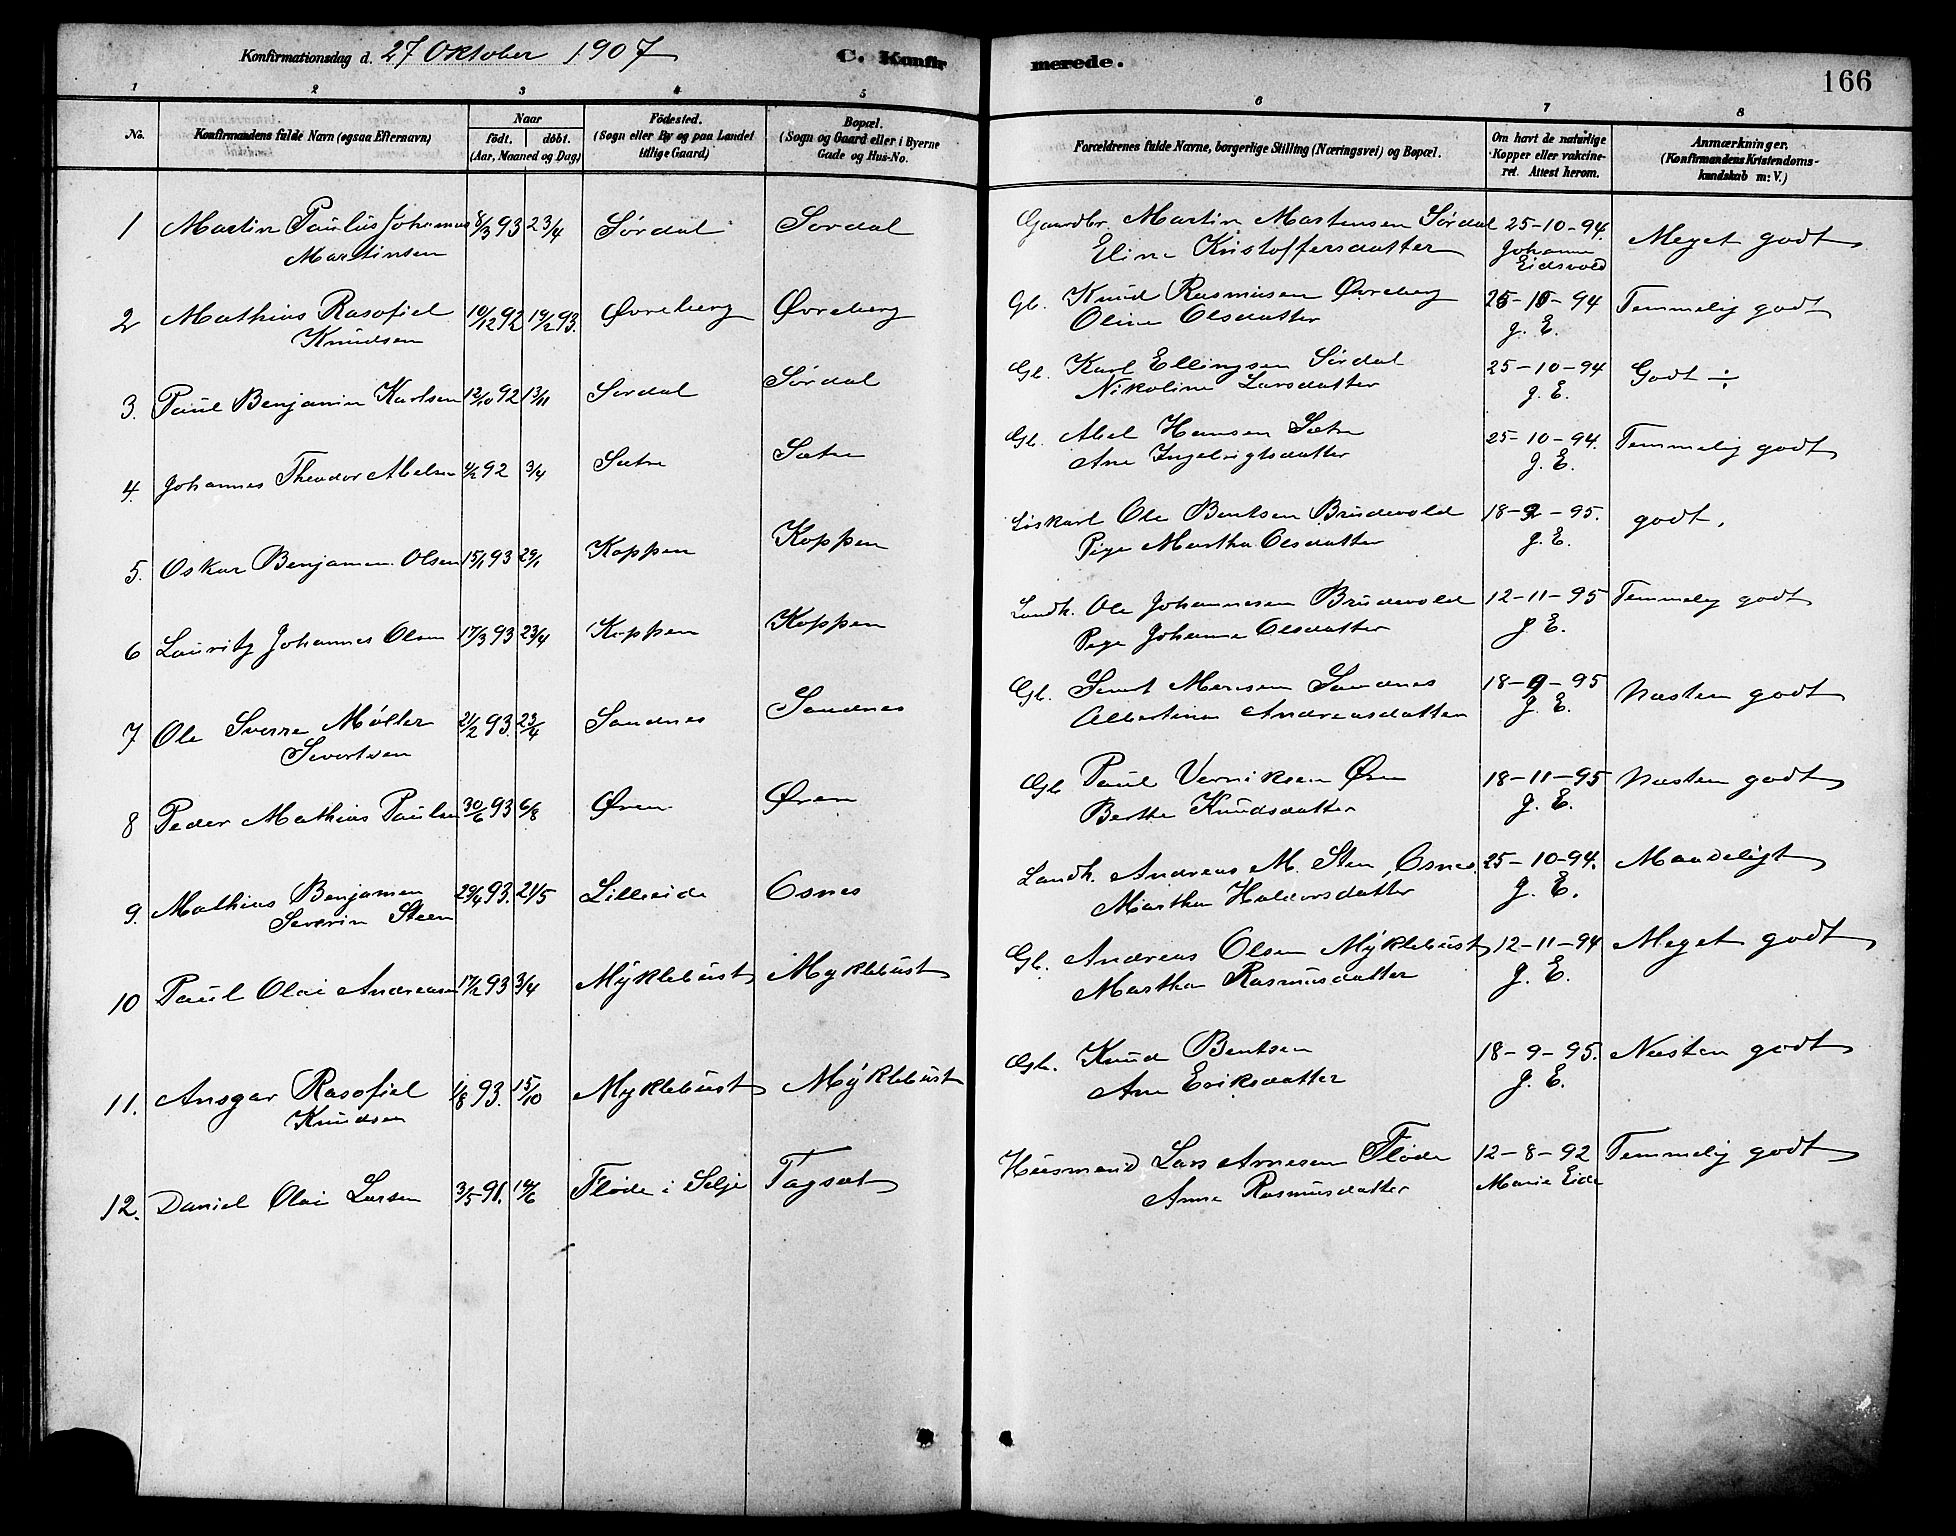 Konfirmationsdag d. 27 Oktober 1907
C. Konfirmerede.
166
1 2 3 4 5 6 7 8
No.
Konfirmandens fulde Navn (ogsaa Efternavn)
Naar
födt. döbt.
(Aar, Maaned og Dag)
Födested.
(Sogn eller By og paa Landet
tillige Gaard)
Bopæl.
(Sogn og Gaard eller i Byerne
Gade og Hus-No.
Forældrenes fulde Navne, borgerlige Stilling (Næringsvei) og Bopæl.
Om havt de naturlige
Kopper eller vakcine-
ret. Attest herom.
Anmærkninger.
(Konfirmandens Kristendoms-
kundskab m: V.)
1 Martin Paulus Johannes 8/3 93 23/4 Sørdal Sørdal Gaardbr. Martin Martensen Sørdal 25-10-94. Meget godt
Martinsen Eline Kristoffersdatter Johanne
Eidsvold
2 Mathias Rasofiel 10/12 92 19/2 93. Øvreberg Øvreberg Gb. Knud Rasmusen Øvreberg 25-10-94 Temmelig godt
Knudsen Oline Olsdatter J. E.
3. Paul Benjamin Karlsen 12/10 92 13/11 Sørdal Sørdal Gb. Karl Ellingsen Sørdal 25-10-94 Godt ÷
Nikoline Larsdatter J. E.
4. Johannes Theodor Abelsen 92 3/4 Sætre Sætre Gb. Abel Hansen Sætre 25-10-94. Temmelig godt
Ane Ingebrigtsdatter J. E.
5. Oskar Benjamin Olsen 15/1 93 29/1 Koppen Koppen Løskarl Ole Bentsen Brudevold 18-9-95. godt.
Pige Martha Olsdatter J. E.
6 Lauritz Johannes Olsen 17/3 93 23/4 Koppen Koppen Landh. Ole Johannesen Brudevold 12-11-95 Temmelig godt
Pige Johanne Olsdatter J. E.
7 Ole Sverre Møller 21/2 93. 23/4 Sandnes Sandnes Gb. Sivert Sandnes 18-9-95 Næsten godt
Sivertsen Albertine Andreasdatter J. E.
8 Peder Mathias Paulsen 30/6 93 6/8 Øren Øren Gb Paul Verniksen Øren 18-11-95 Næsten godt
Berthe Knudsdatter J. E.
9. Mathias Benjamen 29/4 93. 21/5 Lilleeide Osnes Landh. Andreas M. Sten, Osnes. 25-10-94. Maadeligt
Severin Steen Martha Haldorsdatter J. E.
10 Paul Olai Andreasen 17/2 93 3/4 Myklebust Myklebust Gb. Andreas Olsen Myklebust 12-11-94 Meget godt
Martha Rasmusdatter J. E.
11. Ansgar Rasofiel 1/8 93. 15/10 Myklebust Myklebust Gb. Knud Bentsen 18-9-95. Næsten godt
Knudsen Ane Eriksdatter J. E.
12. Daniel Olai Larsen 3/5 91. Fløde i Selje Tagsæt Husmand Lars Arnesen Fløde 12-8-92 Temmelig godt
Anne Rasmusdatter Marie Eide